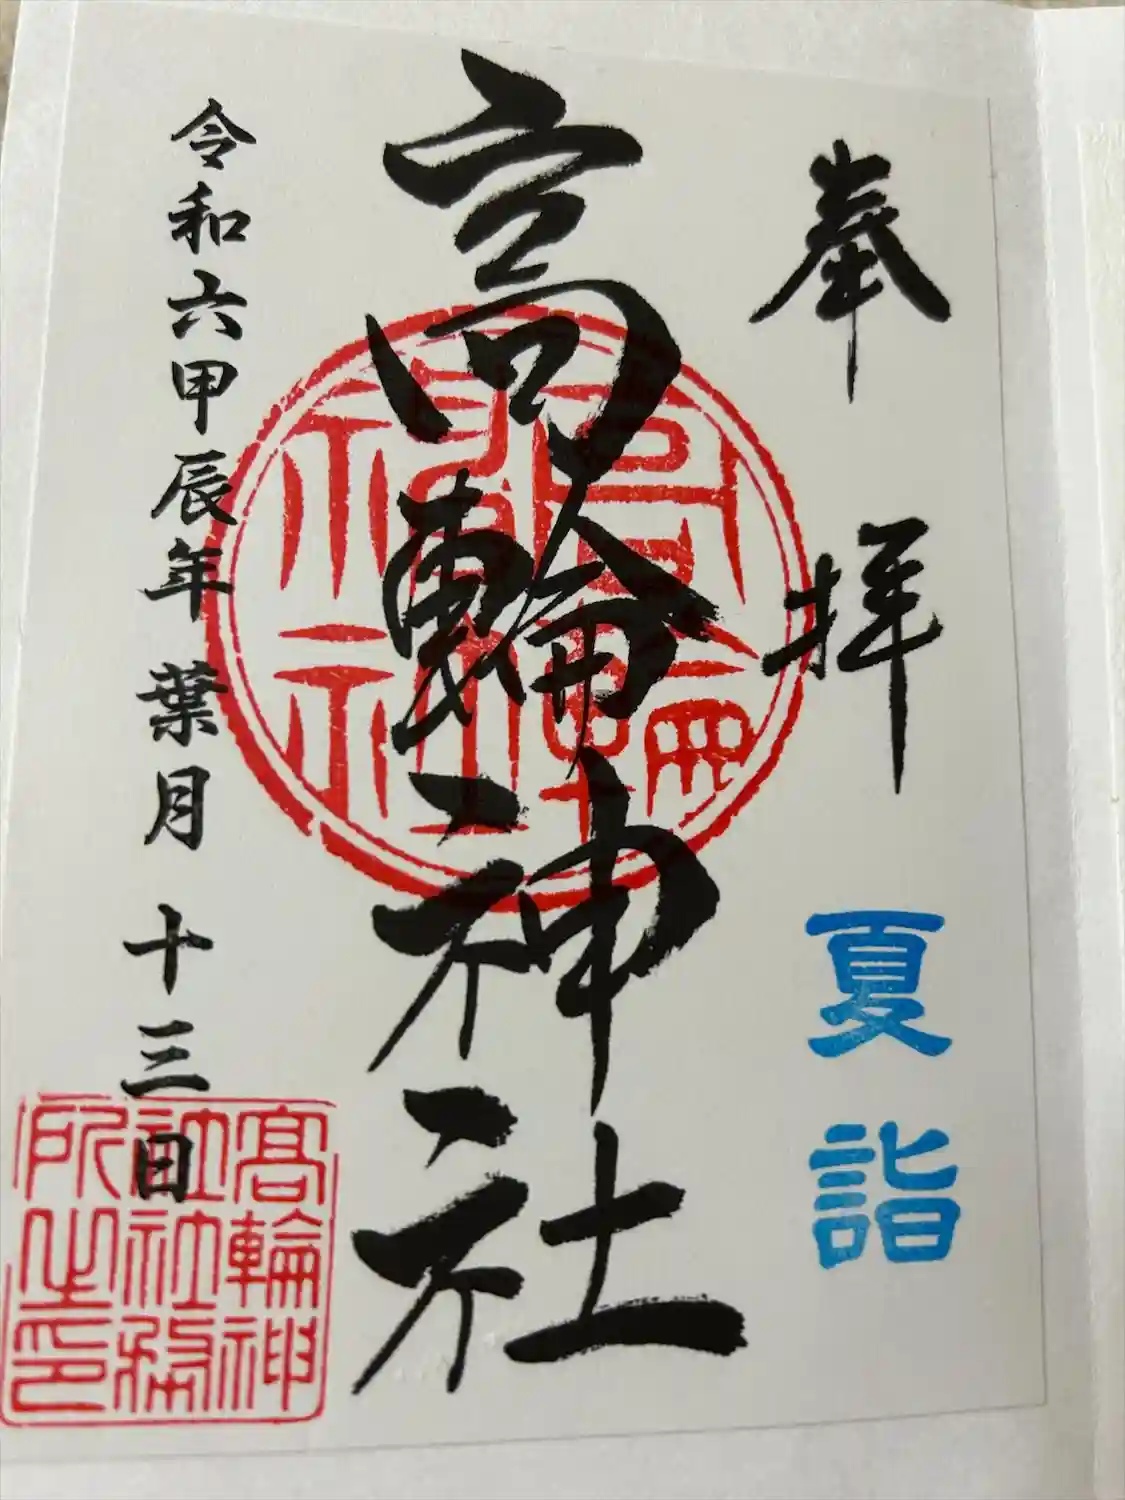 奉拝
夏詣
高輪神社
令和六甲辰年 葉月 十三日
高輪神社
髙輪神
社社務
所之印